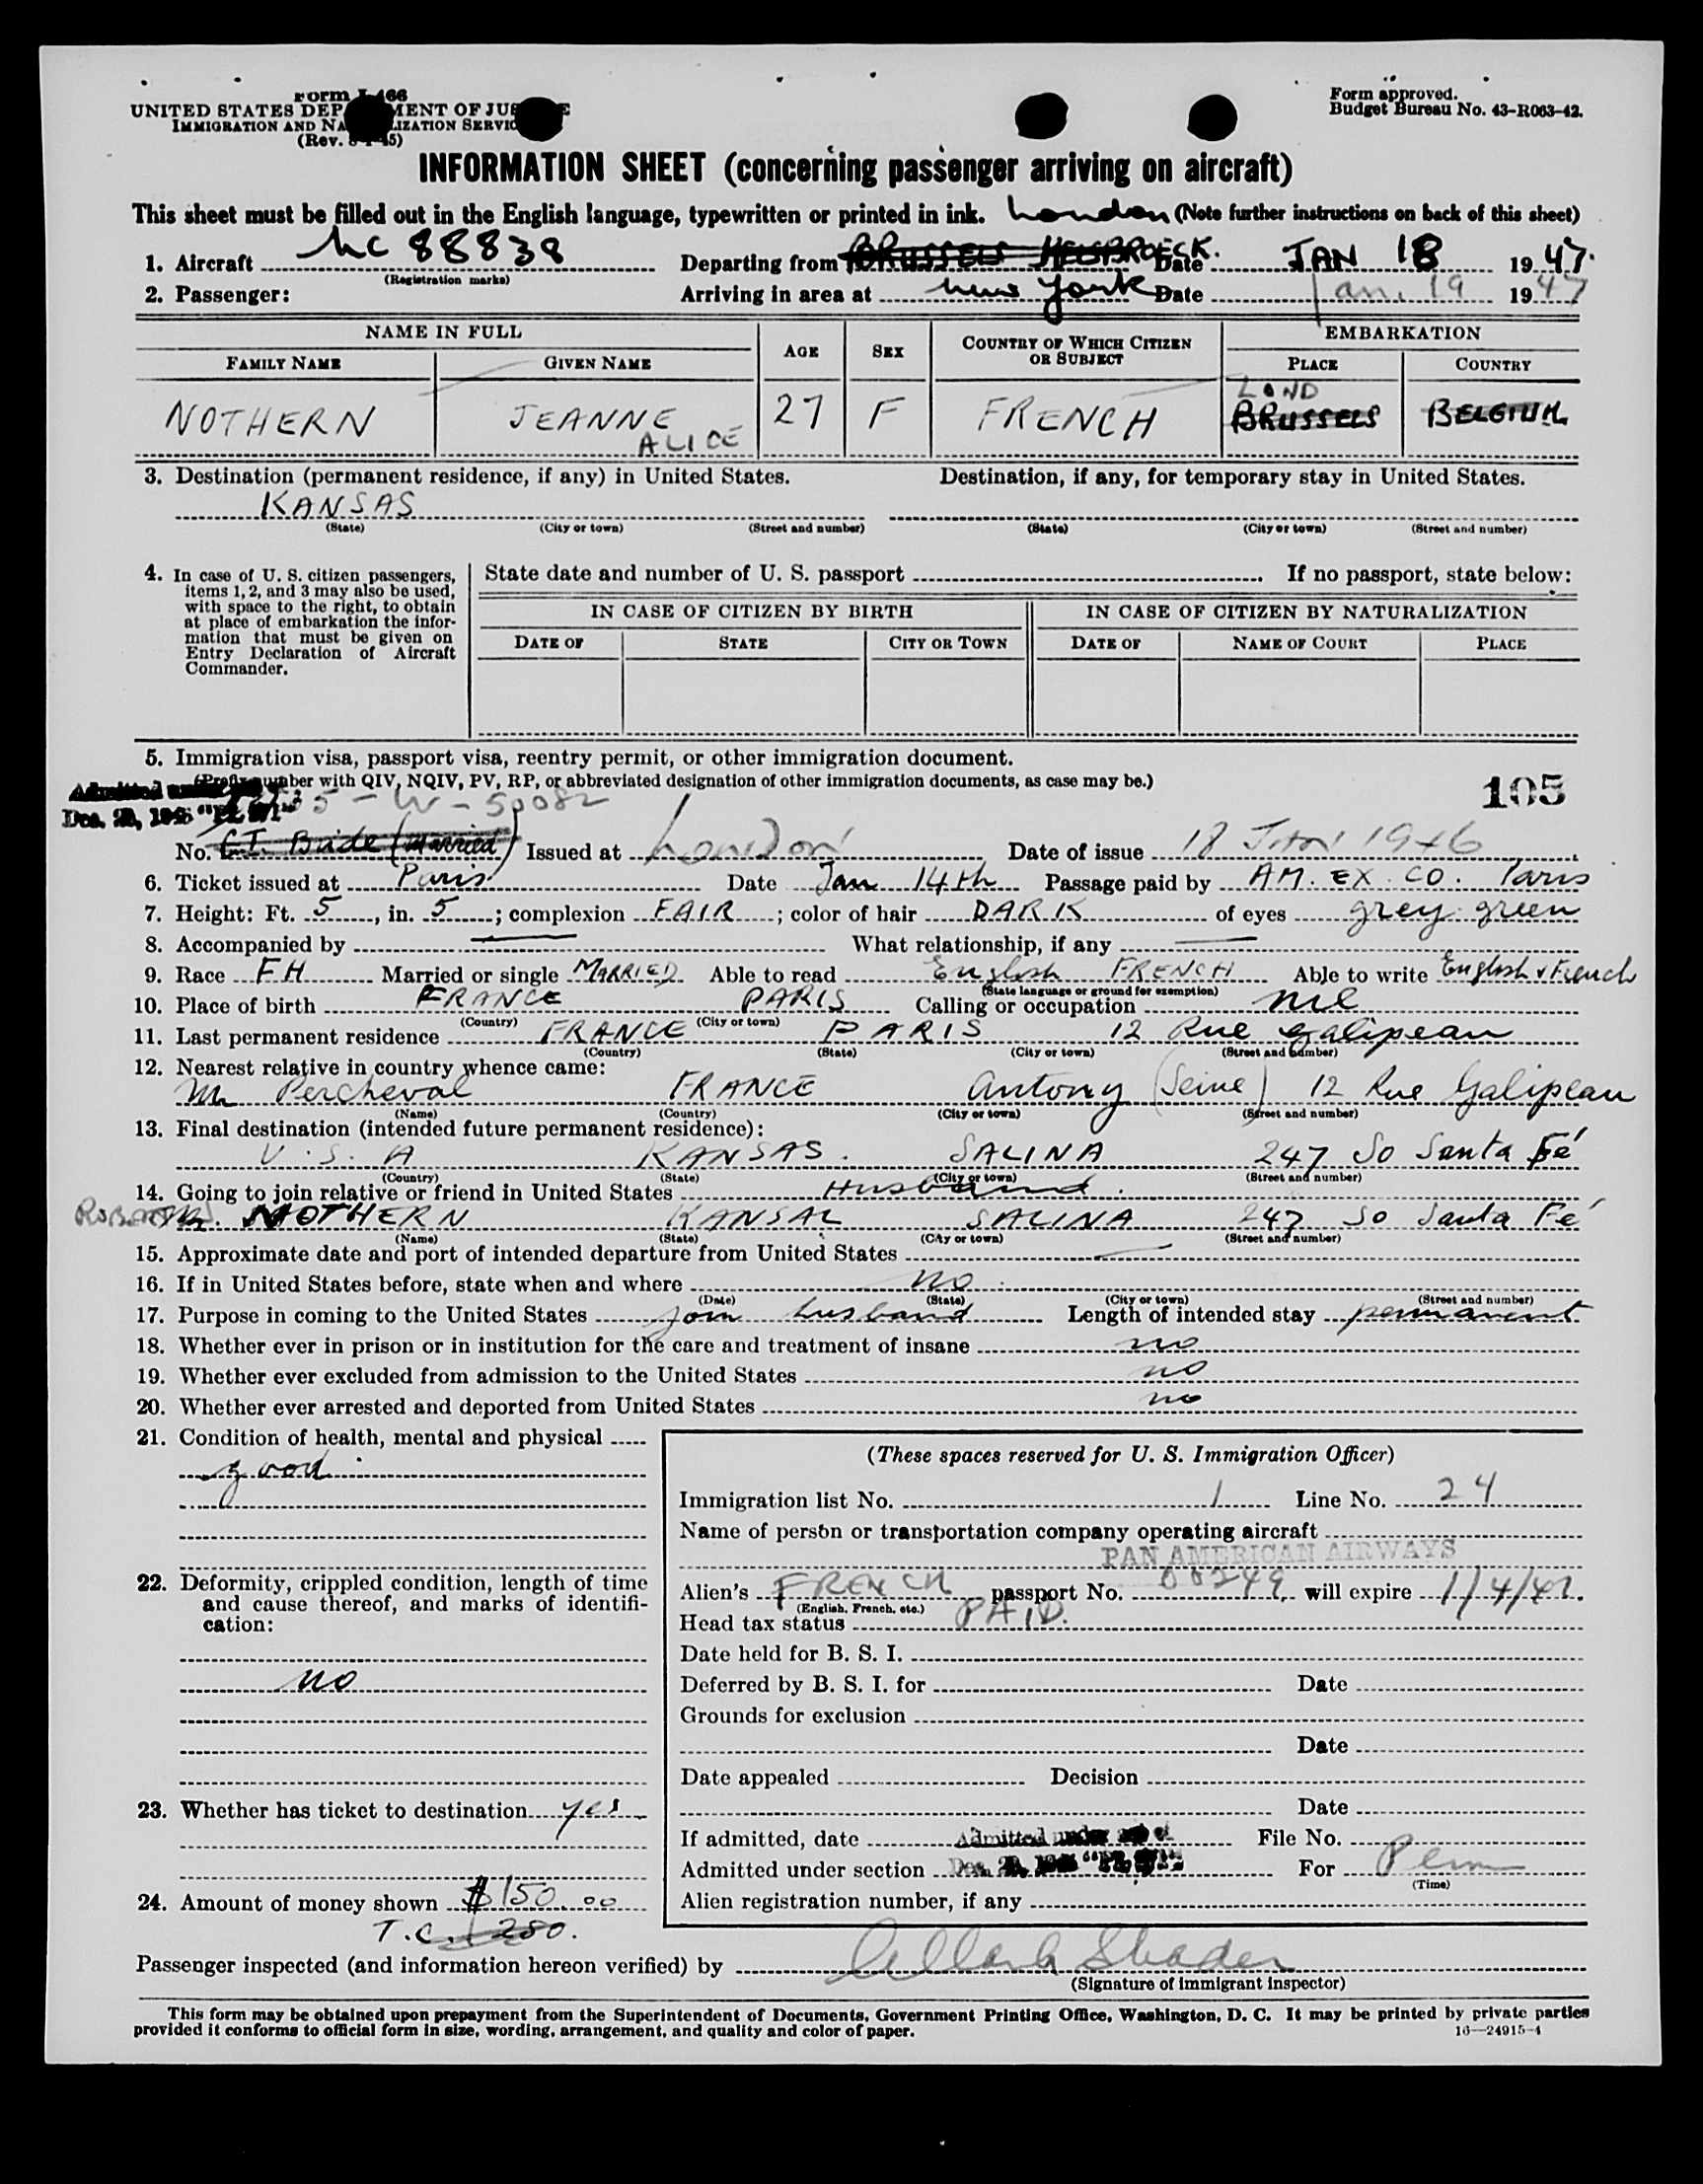 Form I-466
UNITED STATES DEPARTMENT OF JUSTICE
IMMIGRATION AND NATURALIZATION SERVICE
(Rev. 8-1-45)
Form approved.
Budget Bureau No. 43-R063-42.
INFORMATION SHEET (concerning passenger arriving on aircraft)
This sheet must be filled out in the English language, typewritten or printed in ink. London (Note further instructions on back of this sheet)
1. Aircraft NC 88838 Departing from BRUSSELS Date JAN 18 1947.
(Registration marks)
2. Passenger: Arriving in area at New York Date Jan. 19 1947
NAME IN FULL AGE SEX COUNTRY OF WHICH CITIZEN OR SUBJECT EMBARKATION
FAMILY NAME GIVEN NAME PLACE COUNTRY
LOND
NOTHERN JEANNE 27 F FRENCH BRUSSELS BELGIUM
ALICE
3. Destination (permanent residence, if any) in United States. Destination, if any, for temporary stay in United States.
KANSAS
(State) (City or town) (Street and number) (State) (City or town) (Street and number)
4. In case of U. S. citizen passengers, items 1, 2, and 3 may also be used, with space to the right, to obtain at place of embarkation the information that must be given on Entry Declaration of Aircraft Commander.
State date and number of U. S. passport If no passport, state below:
IN CASE OF CITIZEN BY BIRTH IN CASE OF CITIZEN BY NATURALIZATION
DATE OF STATE CITY OR TOWN DATE OF NAME OF COURT PLACE
5. Immigration visa, passport visa, reentry permit, or other immigration document.
(Prefix number with QIV, NQIV, PV, RP, or abbreviated designation of other immigration documents, as case may be.)
105
No. G.I. Bride (Married) Issued at London Date of issue 18 Jan 1946
6. Ticket issued at Paris Date Jan 14th Passage paid by AM. EX. CO. Paris
7. Height: Ft. 5, in. 5; complexion FAIR; color of hair DARK of eyes grey green
8. Accompanied by — What relationship, if any —
9. Race FH Married or single MARRIED Able to read English FRENCH Able to write English & French
(State language or ground for exemption)
10. Place of birth FRANCE PARIS Calling or occupation nil
(Country) (City or town)
11. Last permanent residence FRANCE PARIS 12 Rue Galipeau
(Country) (State) (City or town) (Street and number)
12. Nearest relative in country whence came:
Percheval FRANCE Antony (Seine) 12 Rue Galipeau
(Name) (Country) (City or town) (Street and number)
13. Final destination (intended future permanent residence):
U.S.A KANSAS. SALINA 247 So Santa Fé
(Country) (State) (City or town) (Street and number)
14. Going to join relative or friend in United States Husband.
NOTHERN KANSAS SALINA 247 So Santa Fé
(Name) (State) (City or town) (Street and number)
15. Approximate date and port of intended departure from United States —
16. If in United States before, state when and where no
(Date) (State) (City or town) (Street and number)
17. Purpose in coming to the United States join husband Length of intended stay permanent
18. Whether ever in prison or in institution for the care and treatment of insane no
19. Whether ever excluded from admission to the United States no
20. Whether ever arrested and deported from United States no
21. Condition of health, mental and physical
good
22. Deformity, crippled condition, length of time and cause thereof, and marks of identification:
no
23. Whether has ticket to destination yes
24. Amount of money shown $150.00
T.C. 250.
(These spaces reserved for U. S. Immigration Officer)
Immigration list No. 1 Line No. 24
Name of person or transportation company operating aircraft
PAN AMERICAN AIRWAYS
Alien's FRENCH passport No. 00249 will expire 1/4/47.
(English, French, etc.)
Head tax status PAID.
Date held for B. S. I.
Deferred by B. S. I. for Date
Grounds for exclusion
Date
Date appealed Decision
Date
If admitted, date Admitted under File No.
Admitted under section For Perm
(Time)
Alien registration number, if any
Passenger inspected (and information hereon verified) by
(Signature of immigrant inspector)
This form may be obtained upon prepayment from the Superintendent of Documents, Government Printing Office, Washington, D. C. It may be printed by private parties
provided it conforms to official form in size, wording, arrangement, and quality and color of paper.
16—24915-1